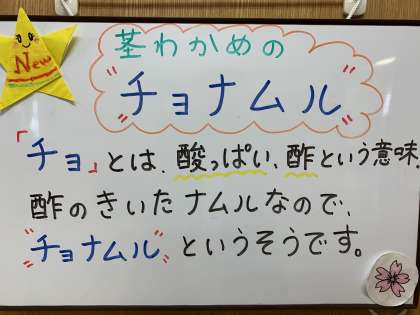 New
茎わかめの
"チョナムル"
「チョ」とは、酸っぱい、酢という意味。
酢のきいたナムルなので、
"チョナムル"というそうです。